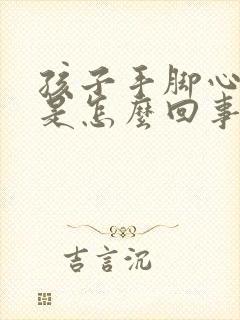 孩子手脚心
是怎麽回事
吉言沉